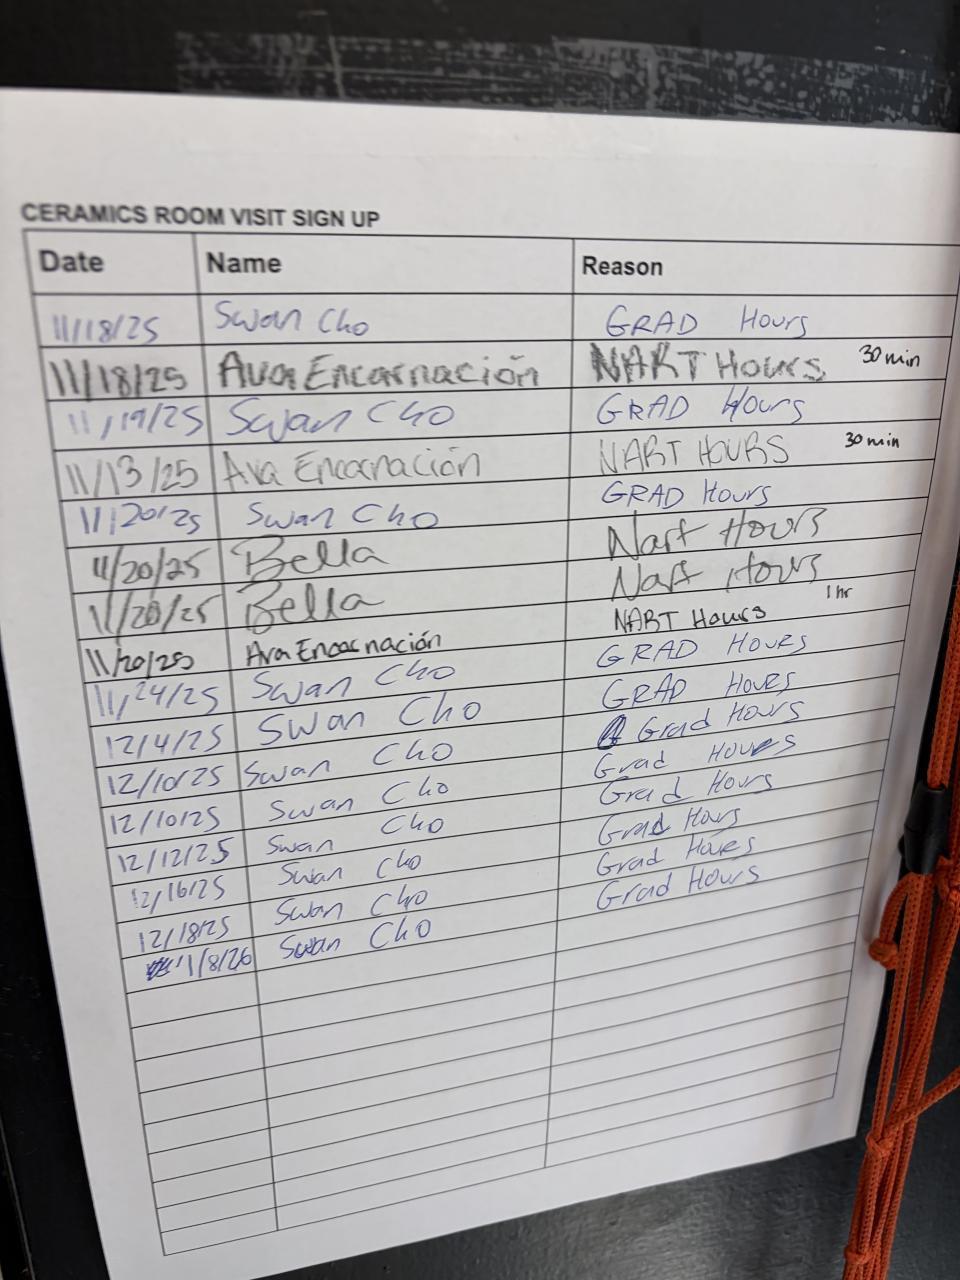 CERAMICS ROOM VISIT SIGN UP
Date Name Reason
11/18/25 Swan Cho GRAD Hours
11/18/25 Ava Encarnación NART Hours 30 min
11/19/25 Swan Cho GRAD Hours
11/13/25 Ava Encarnación NART HOURS 30 min
11/20/25 Swan Cho GRAD Hours
11/20/25 Bella Nart Hours
11/20/25 Bella Nart Hours
11/20/25 Ava Encarnación NART Hours 1 hr
11/24/25 Swan Cho GRAD HOURS
12/4/25 Swan Cho GRAD HOURS
12/10/25 Swan Cho Grad Hours
12/10/25 Swan Cho Grad Hours
12/12/25 Swan Cho Grad Hours
12/16/25 Swan Cho Grad Hours
12/18/25 Swan Cho Grad Hours
1/8/26 Swan Cho Grad Hours